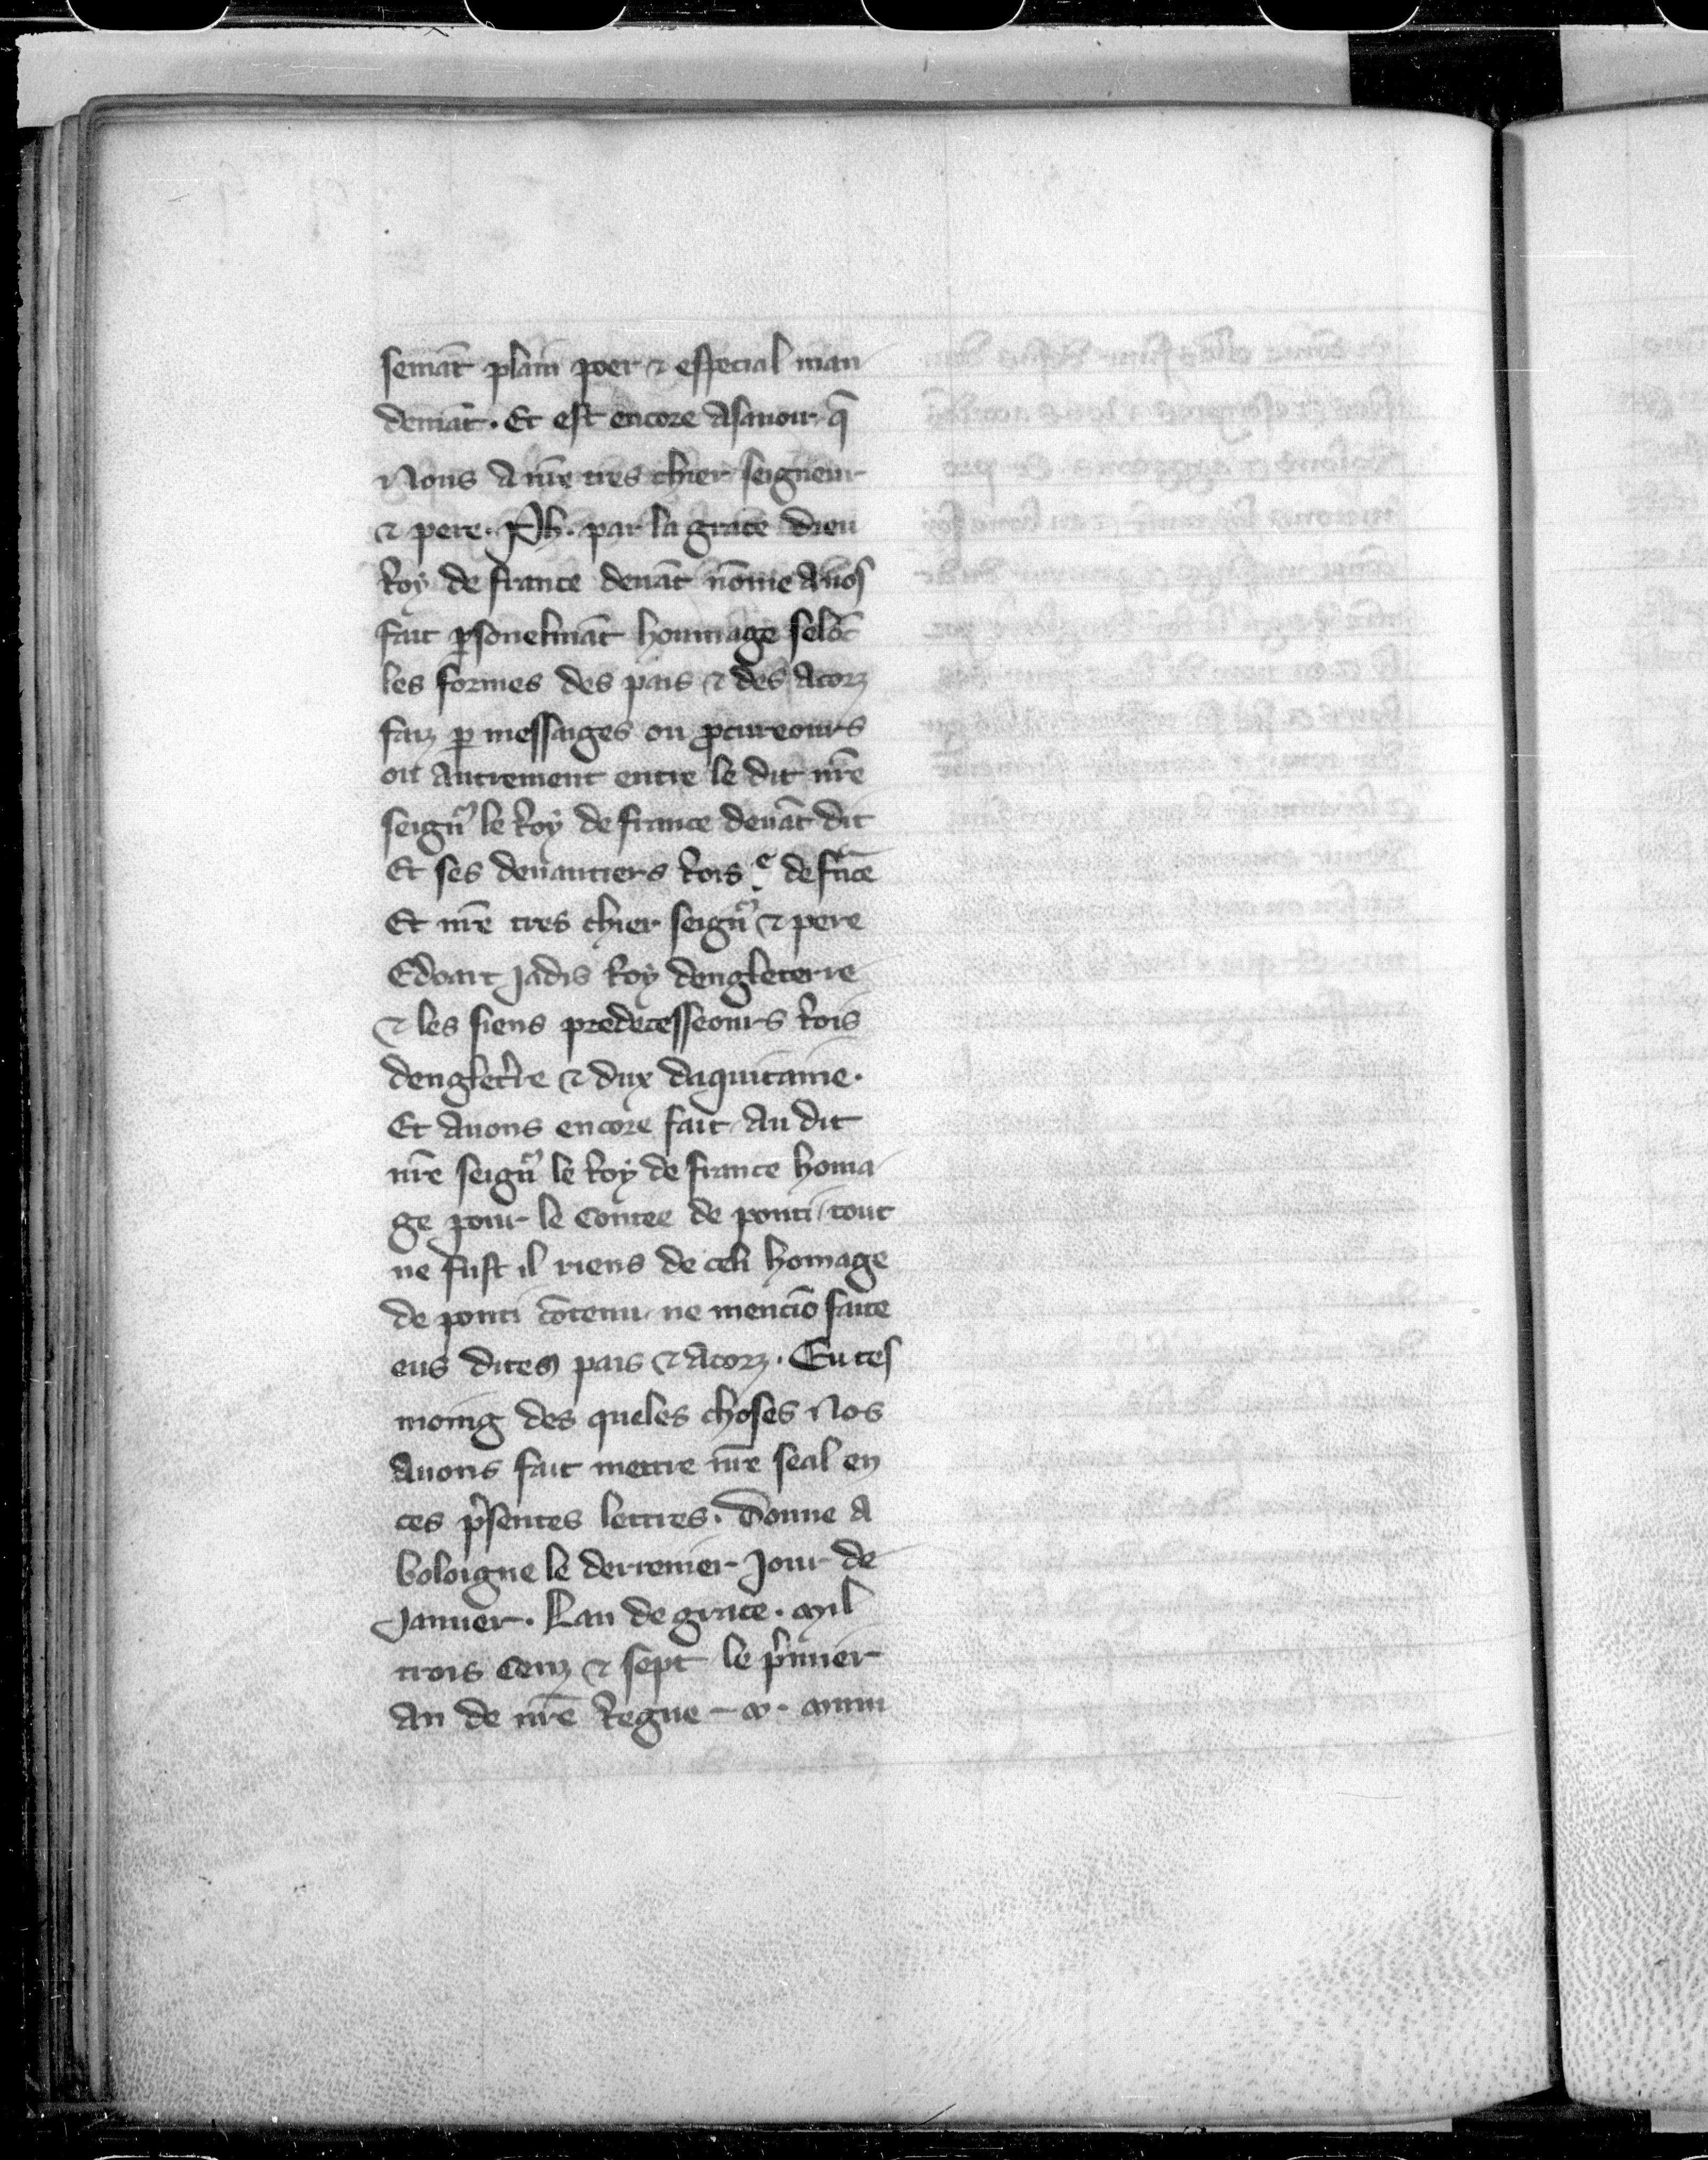 semāt plain poer ⁊ especial man
demāt. Et est encore asauoir q̄
Nous a nr̄e tres chier seigneur
⁊ pere. Ph. par la grace dieu
Roy de france deuāt nōme auos
fait ꝑsonelmāt hommage selōc
les formes des pais ⁊ des acorz
faiz ꝑ messaiges ou ꝓcureours
ou autrement entre le dit nr̄e
seign̄ᷣ le Roy de france deuāt dit
Et ses deuantiers Rois e de fr̄ce
Et nr̄e tres chier seign̄ᷣ ⁊ pere
Edoart Jadis Roy dengleterre
⁊ les siens predecesseours Rois
denglet're ⁊ dux daquitaine.
Et auons encore fait au dit
nr̄e seign̄ᷣ le Roy de france homa
ge pour le Contee de ponti tout
ne fust il riens de celi homage
de ponti cōtenu ne menciō faite
eus dites pais ⁊ acorz. En tes
moing des queles choses Nos
auons fait mettre nr̄e seal en
ces p'sentes lettres. Donne a
boloigne le derrenier Jour de
Januier. Lan de grace. mil
trois Cenz ⁊ sept le p'mier
an de nr̄e Regne